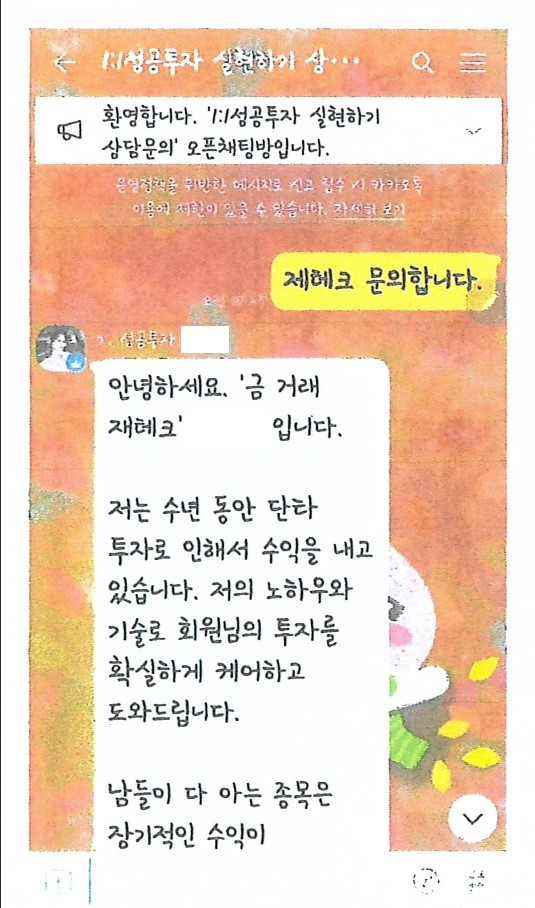 1:1성공투자 실현하기 상···
환영합니다. '1:1성공투자 실현하기
상담문의' 오픈채팅방입니다.
운영정책을 위반한 메시지로 신고 접수 시 카카오톡
이용에 제한이 있을 수 있습니다. 자세히 보기
제테크 문의합니다.
성공투자
안녕하세요. '금 거래
재테크' 입니다.
저는 수년 동안 단타
투자로 인해서 수익을 내고
있습니다. 저의 노하우와
기술로 회원님의 투자를
확실하게 케어하고
도와드립니다.
남들이 다 아는 종목은
장기적인 수익이